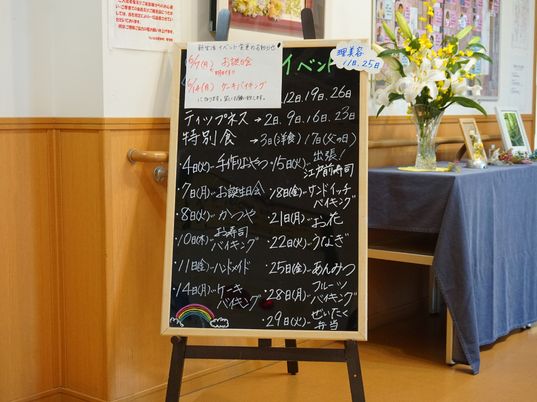 新生活イベント変更のお知らせ
6/7(月) お誕生会
6/14(月) ケーキバイキング
イベント
理美容
11日、25日
12日、19日、26日
ティップネス → 2日、9日、16日、23日
特別食 → 3日(洋食) 17日(父の日)
・4日(火)…手作りおやつ
・7日(月)…お誕生日会
・8日(火)…かつや
・10日(木)…お寿司バイキング
・11日(金)…ハンドメイド
・14日(月)…ケーキバイキング
・15日(火)…出張!
江戸前寿司
・18日(金)…サンドイッチ
バイキング
・21日(月)…お花
・22日(火)…うなぎ
・25日(金)…あんみつ
・28日(月)…フルーツ
バイキング
・29日(火)…ぜいたく
弁当